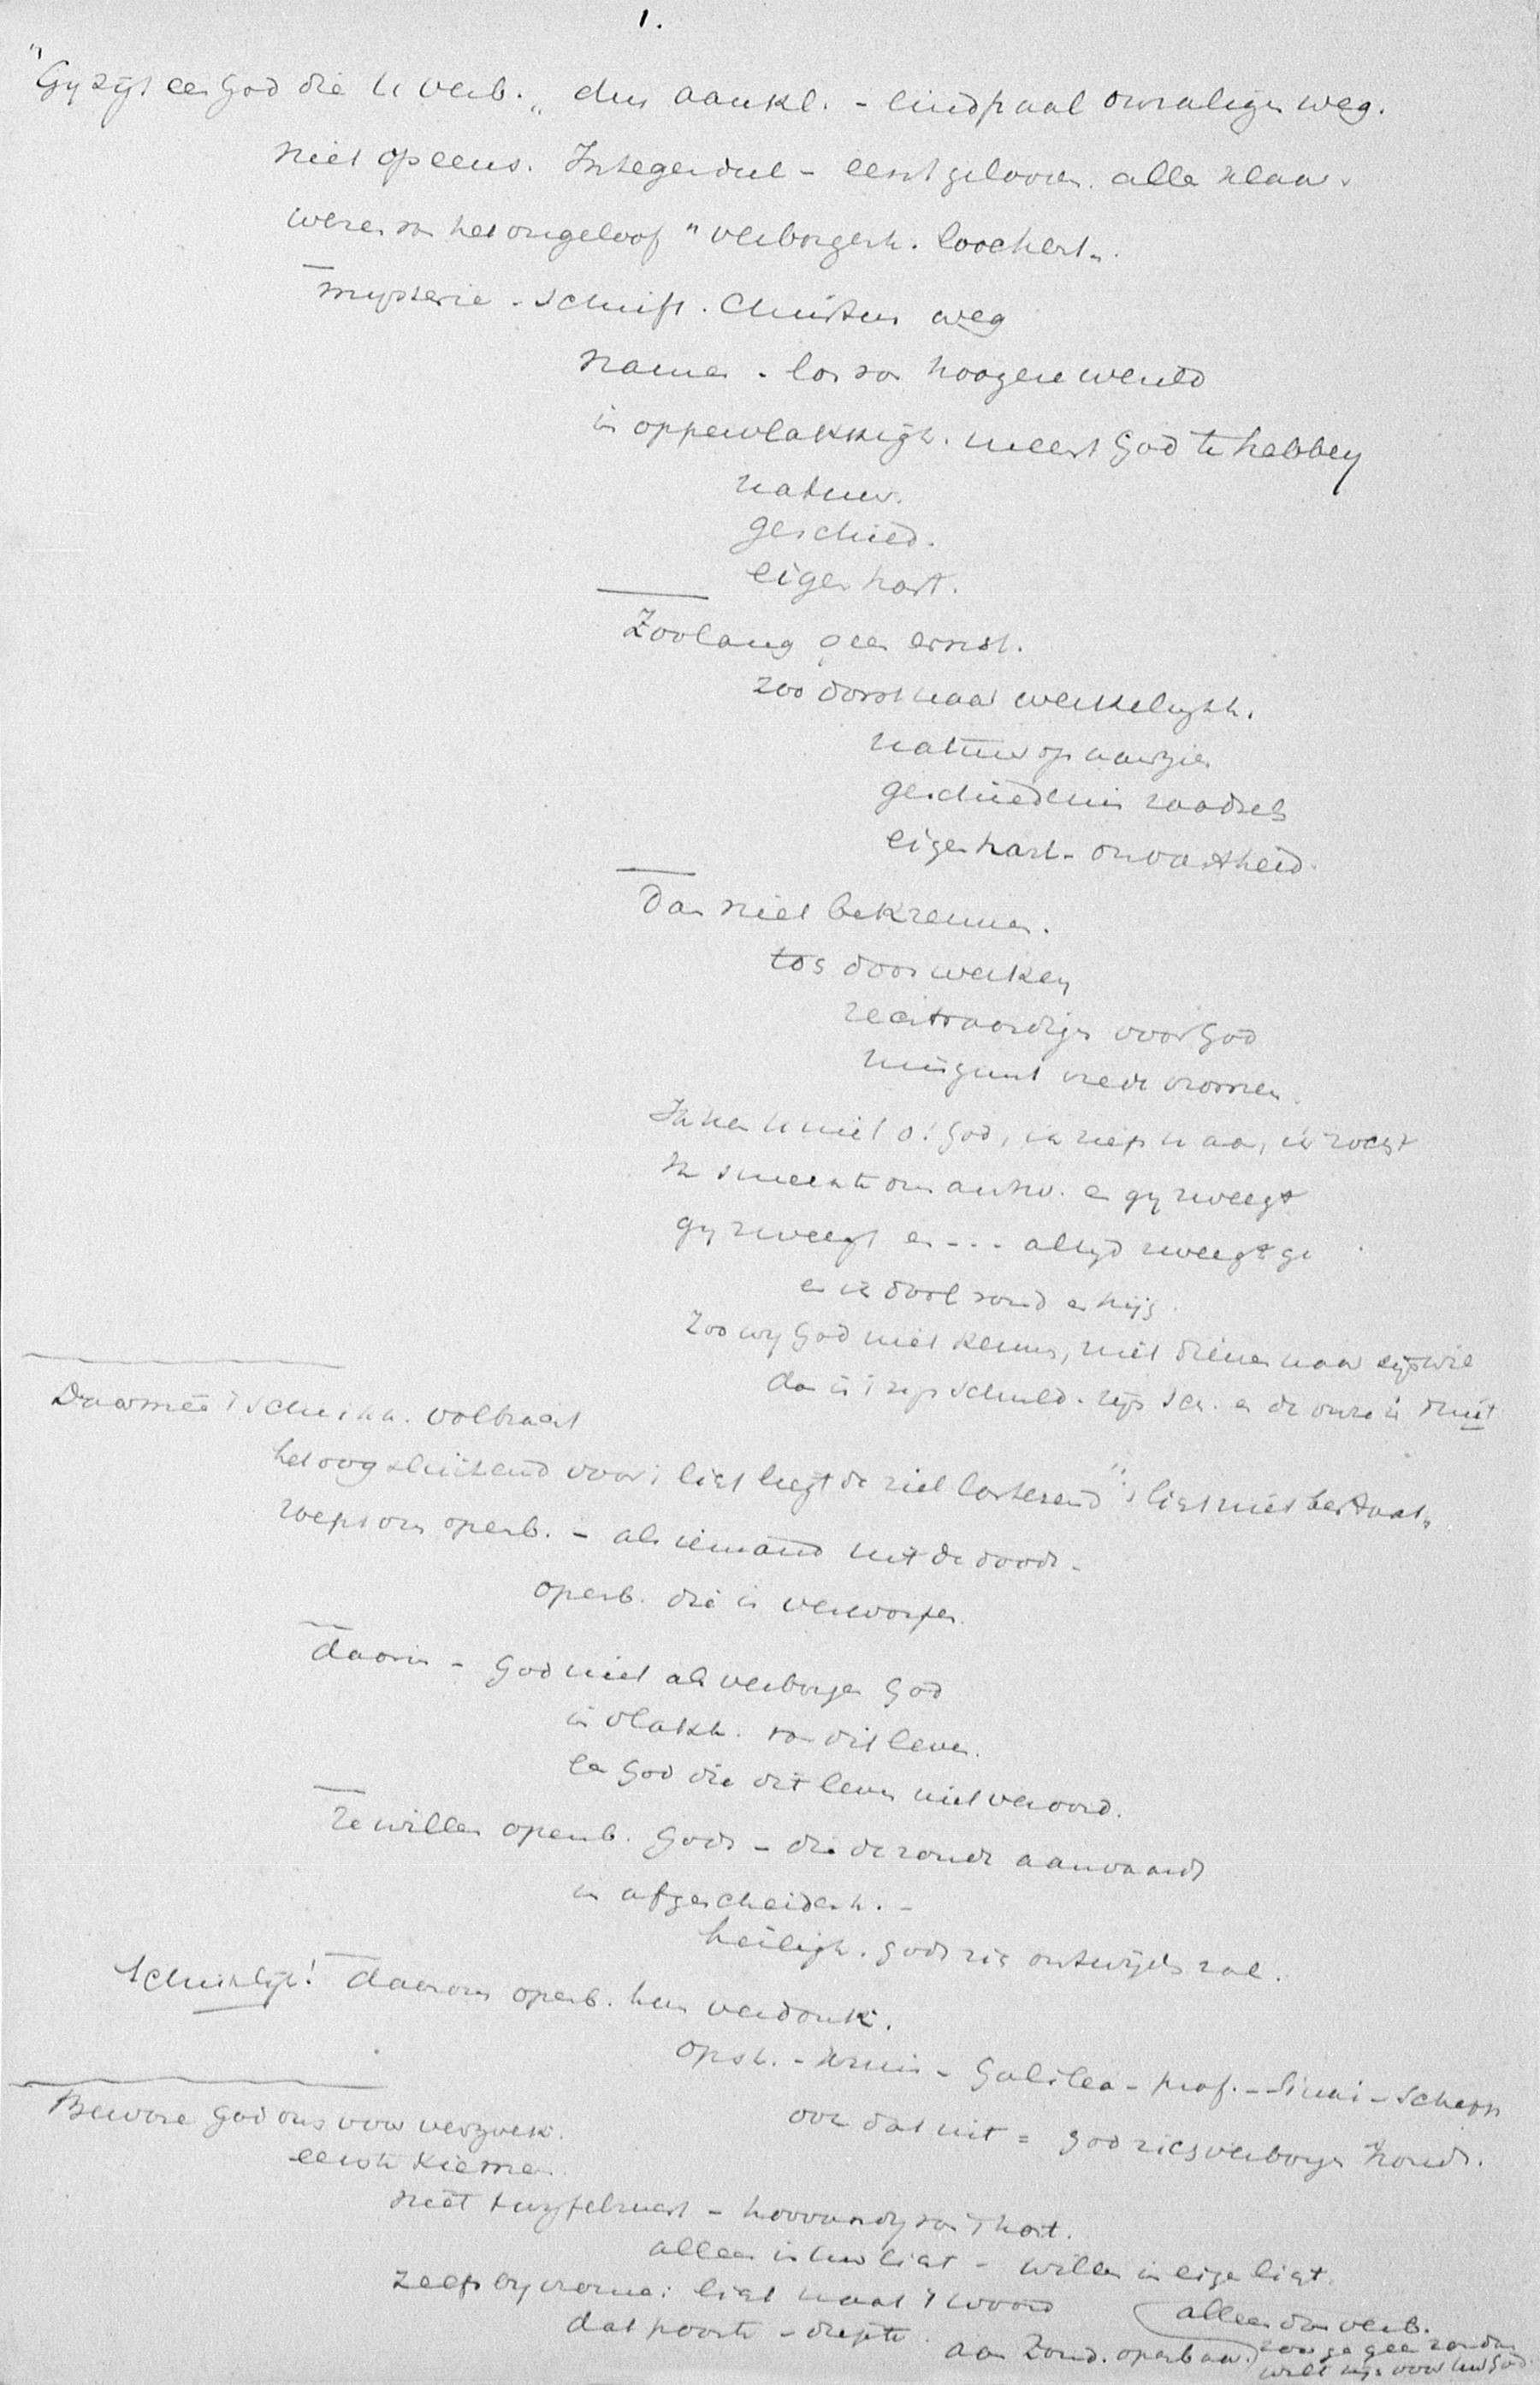 1.
"Gy zijt een God die U verb." dus aankl. - eindpaal dwaligen weg.
niet opeens. Integendeel - eerst gelooven. alle
wezen van het ongeloof "verborgenh. loochent".
mysterie - schrift. Christus weg
namen - los van hoogere wereld
in oppervlakkigh. meent God te hebben
natuur.
geschied.
eigen hart.
Zoolang geen ernst.
zoo dorst naar werkelijkh.
natuur op aanzien
geschiedenis raadsels
eigen hart - onvastheid.
Dan niet bekennen.
tos doorwerken
rechtvaardigen voor God
misgunt vrede vromen.
Ik ken U niet o! God, ik riep U aan, ik zocht
Ik smeekte om antw. en gy zweegt
gy zweegt en - - - altyd zweegt ge
en ik dool rond en hijg.
Zoo wy God niet kennen, niet dienen naar zijn wil
dan is 't zijn schuld. zijn sch. en de onze is
Daarmee 't schrikk. volbracht
het oog sluitend voor 't licht liegt de ziel lasterend "'t licht niet bestaat"
roept om openb. - als iemand uit de doode -
openb. die is verworpen.
daarin - God niet als verborgen God
in vlakh. van dit leven.
een God die dit leven niet veroord.
Ze willen openb. Gods - die de zonde aanvaardt
in afgescheidenh. -
heiligh. Gods zich ontwijden zal.
Schriklijk! daarom openb. hun verdonk.
opst. - kruis - Galilea - prof. - Sinai - Schepp
ook dat uit = God zich verborgen houdt.
Beware God ons voor verzoek.
eerste kiemen.
niet twyfelzucht - hoovaardy van 't hart.
alleen in Uw licht - willen in eigen licht.
zelfs by vromen: licht naast 't woord
dat poorte - diepte.
(alleen dan verb.
aan Zond. openbaar.) zoo ge geen zondaar
wilt zijn voor Uw God